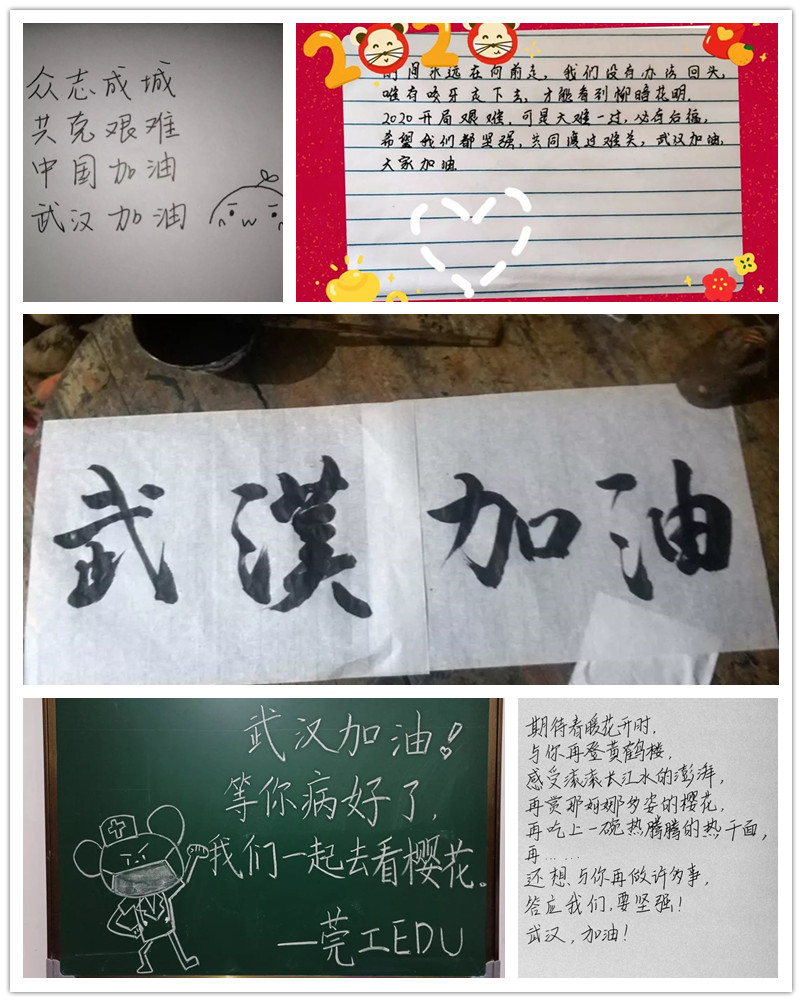 众志成城
共克艰难
中国加油
武汉加油
2020
时间永远在向前走，我们没有办法回头，
唯有咬牙走下去，才能看到柳暗花明。
2020开局艰难，可是大难一过，必有后福，
希望我们都坚强，共同渡过难关，武汉加油，
大家加油.
武漢加油
武汉加油！
等你病好了，
我们一起去看樱花。
—莞工EDU
期待春暖花开时，
与你再登黄鹤楼，
感受滚滚长江水的澎湃，
再赏那婀娜多姿的樱花，
再吃上一碗热腾腾的热干面，
再……
还想与你再做许多事，
答应我们，要坚强！
武汉，加油！